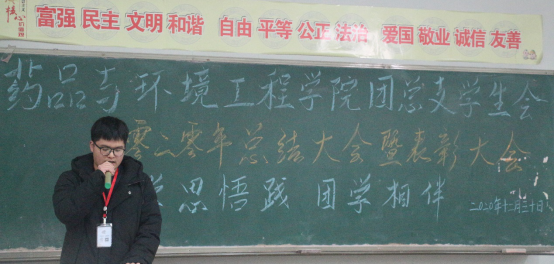 富强 民主 文明 和谐 自由 平等 公正 法治 爱国 敬业 诚信 友善
药品与环境工程学院团总支学生会
零二零年总结大会暨表彰大会
思悟践 团学相伴
2020年十二月三十日